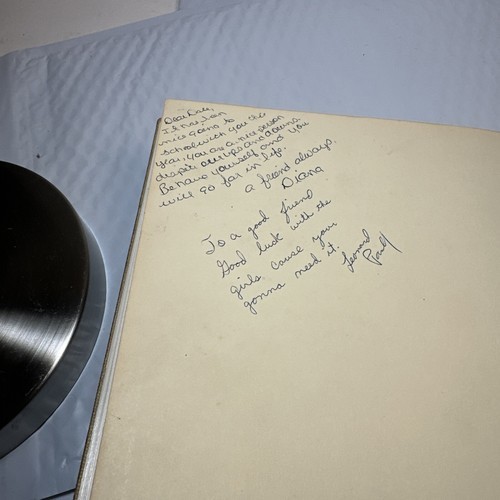 Dear Dale,
It has been
nice going to
school with you this
year, you are a nice person
despite our ups and downs.
Behave yourself and you
will go far in life.
a friend always,
Diana
To a good friend
Good luck with the
girls cause your
gonna need it.
Leonard